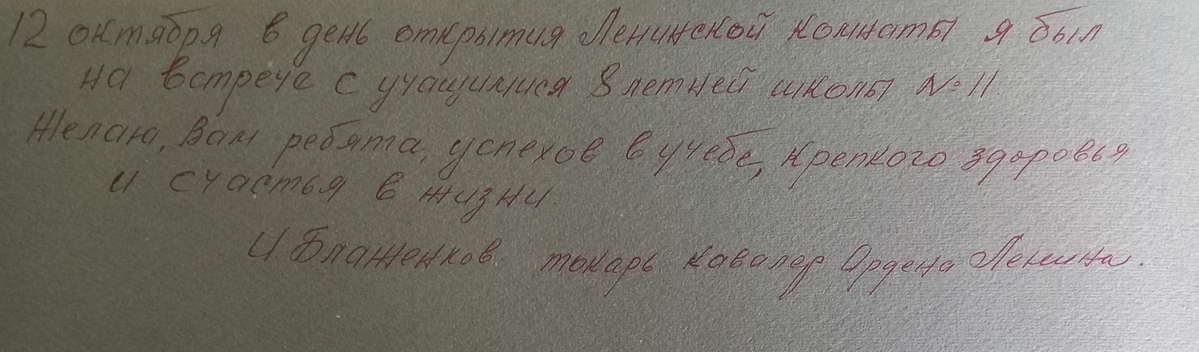 12 октября в день открытия Ленинской комнаты я был
на встрече с учащимися 8 летней школы № 11.
Желаю, Вам ребята, успехов в учебе, крепкого здоровья
и счастья в жизни.
И Блаженков токарь кавалер Ордена Ленина.